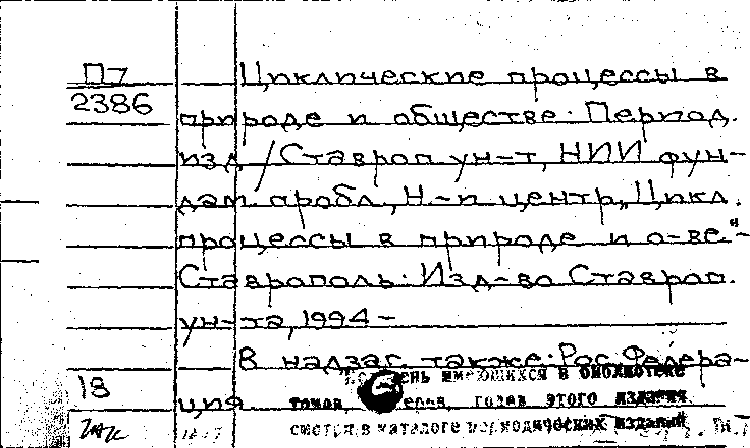 П7
2386
Циклические процессы в
природе и обществе: Период.
изд. / Ставроп. ун-т, НИИ фун-
дам. пробл., Н-и центр „Цикл.
процессы в природе и о-ве." -
Ставрополь: Изд-во Ставроп.
ун-та, 1994 -
В надзаг. также: Рос. Федера-
ция
18
имеющихся в библиотеке
томов, годов этого издания
смотри в каталоге периодических изданий